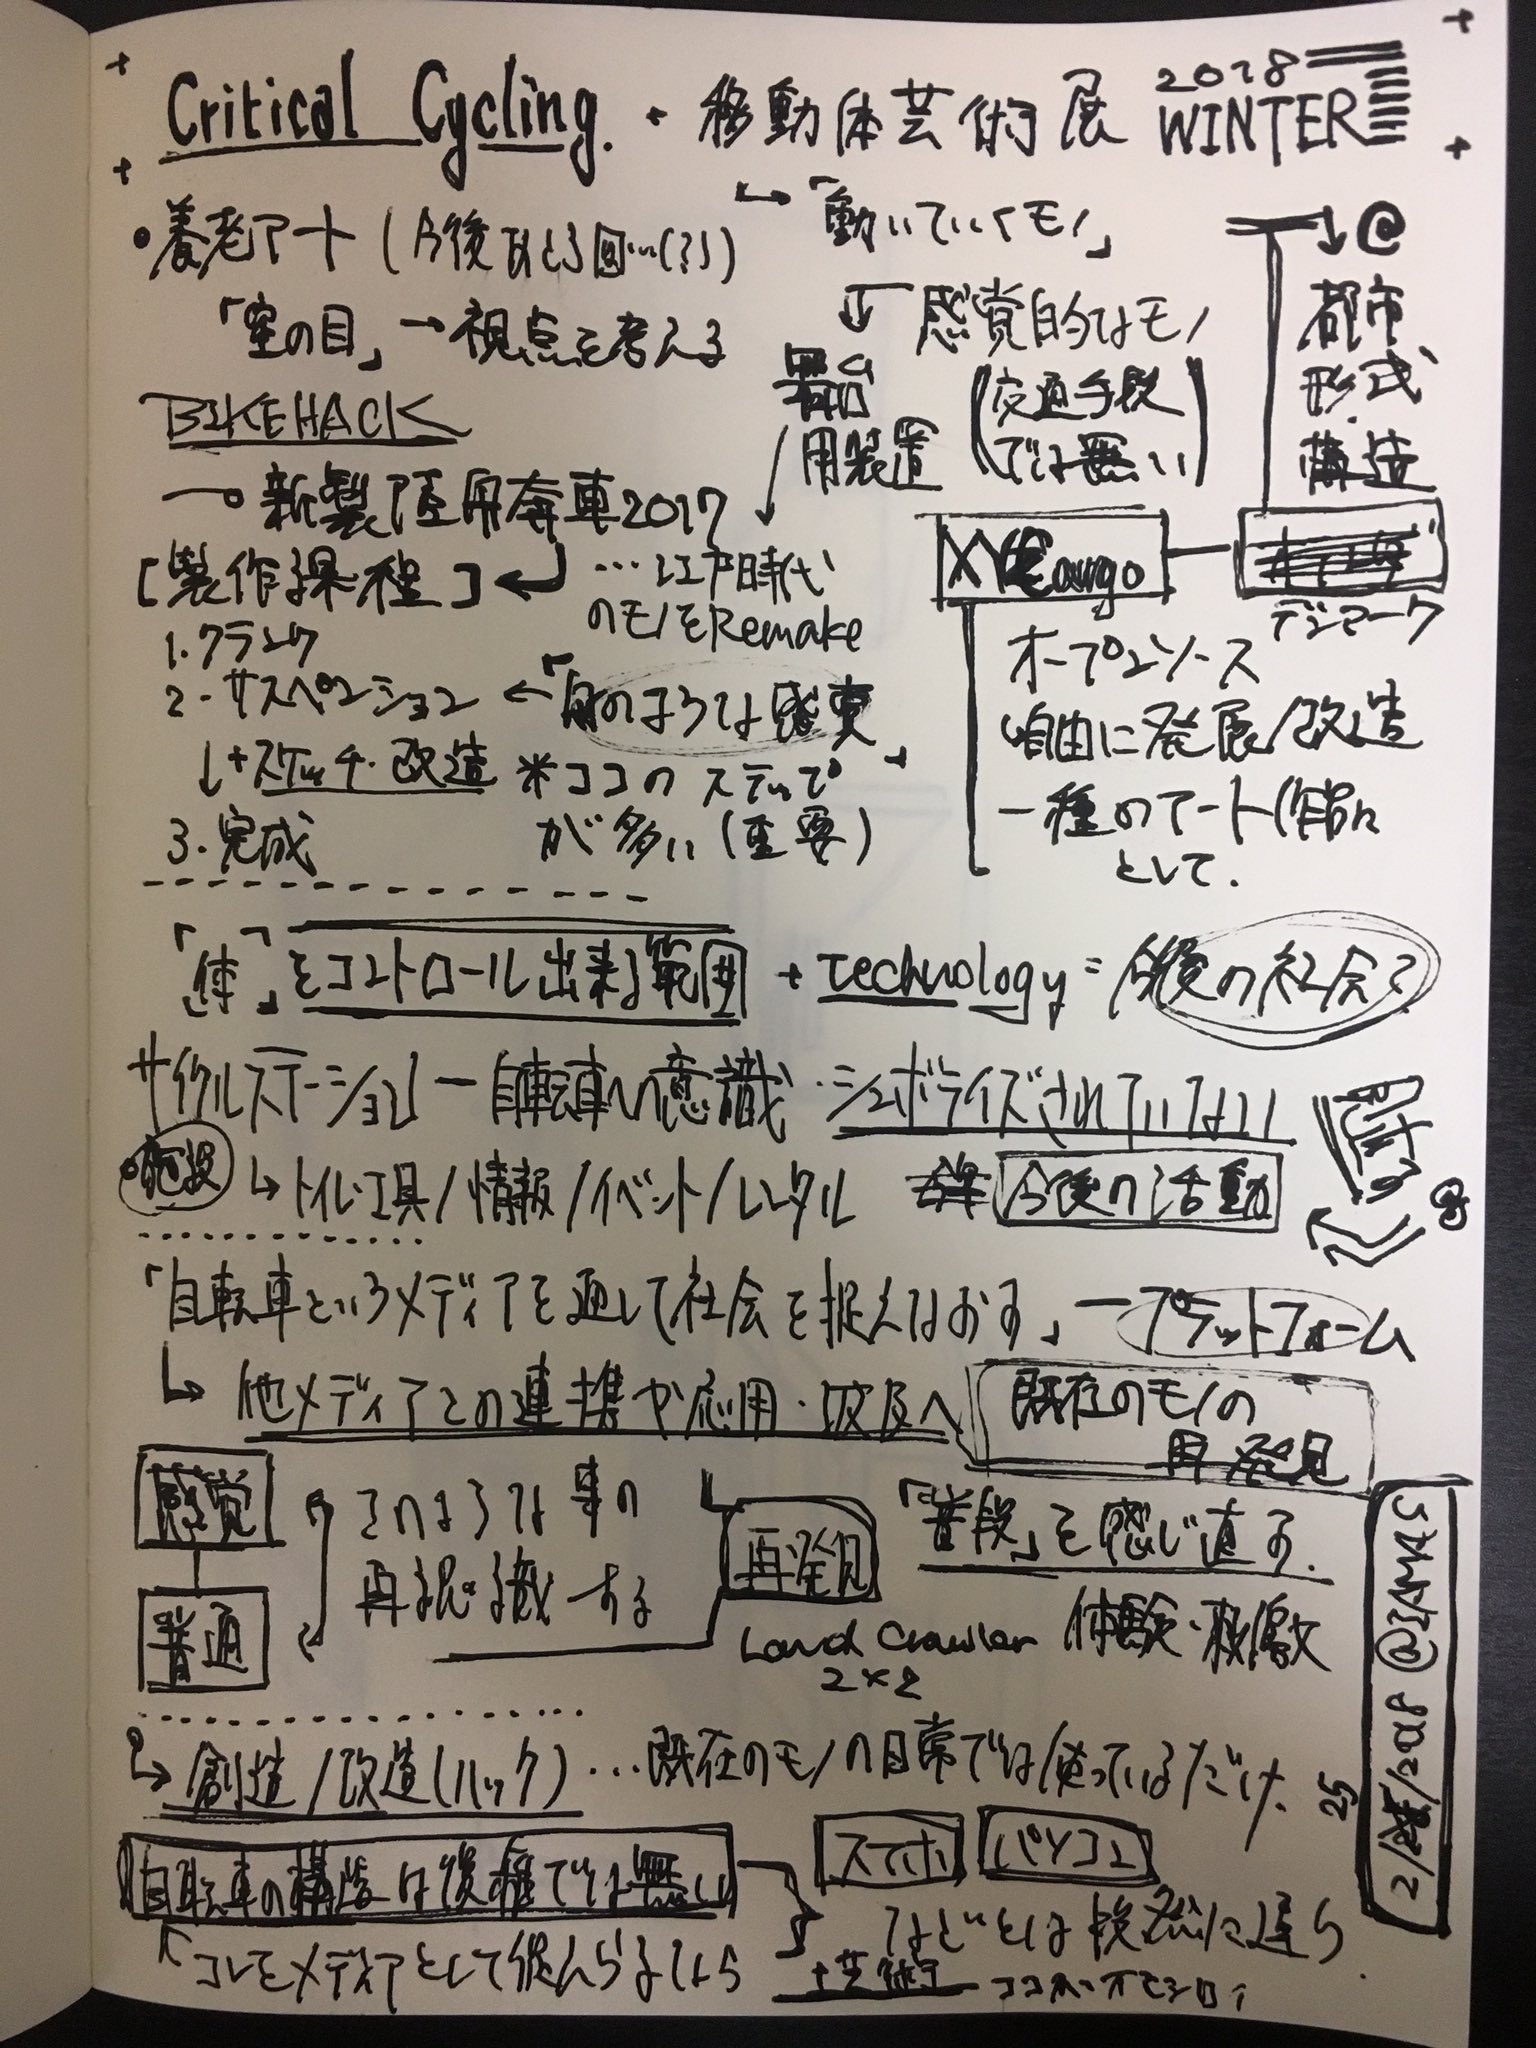 Critical Cycling. ・ 移動体芸術展 2018 WINTER
・養老アート (今後
→「動いていくモノ」
↓@
都市
形式
構造
「空の目」→視点を考える
↓感覚的なモノ
(交通手段
では無い)
用装置
BIKEHACK
新製陸用奔車2017
…江戸時代
のモノをRemake
[製作課程]
1.クランク
2.サスペンション ←「舟のような感覚」
↳+スケッチ・改造 ※ココのステップ
が多い(重要)
3.完成
XYZcargo
デンマーク
オープンソース
自由に発展/改造
一種のアート作品
として.
「体」をコントロール出来る範囲 + technology = 今後の社会?
サイクルステーション ー 自転車への意識・シンボライズされていない
・施設 ↳トイレ・工具/情報/イベント/レンタル
今後の活動
「自転車というメディアを通して社会を捉えなおす」ープラットフォーム
↳他メディアとの連携や応用・波及へ
既存のモノの
再発見
感覚
普通
このような事の
再認識する
再発見
「普段」を感じ直す.
Land Crawler 体験・刺激
2×2
↳創造/改造(ハック)…既存のモノの日常では使っているだけ.
自転車の構造は複雑では無い
スマホ パソコン
などとは 違う.
「コレをメディアとして捉え
+芸術 ココがオモシロイ
2/25/2018 @IAMAS